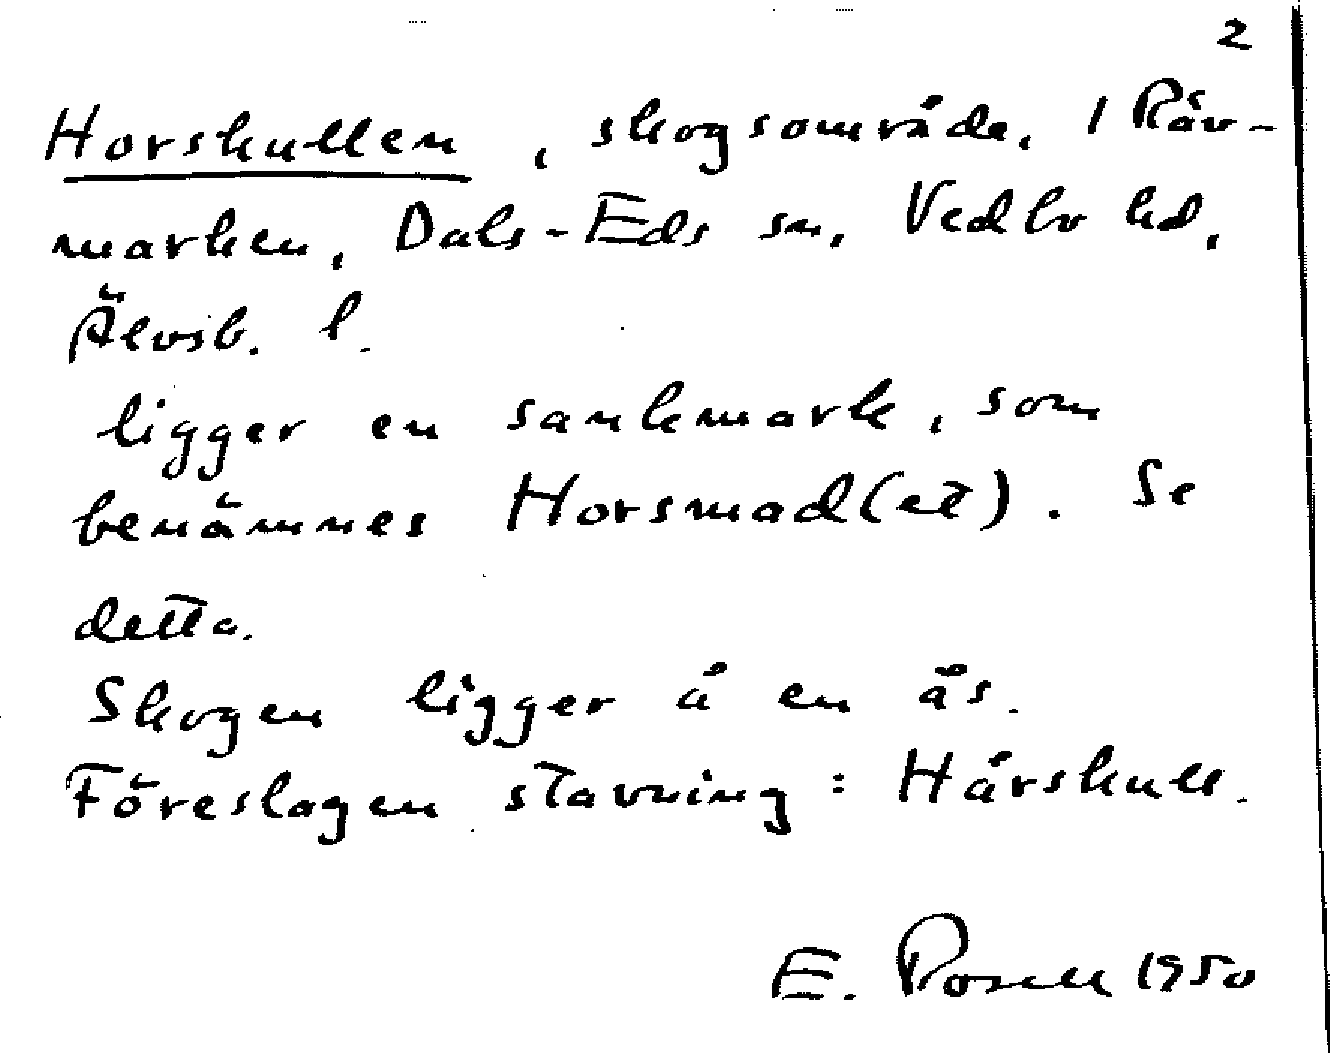 2
Horskullen, skogsområde, 1 Räv-
marken, Dals-Eds sn, Vedbo hd,
Älvsb. l.
ligger en sankmark, som
benämnes Horsmad(et). Se
detta.
Skogen ligger å en ås.
Föreslagen stavning: Hårskull.
E. 1950